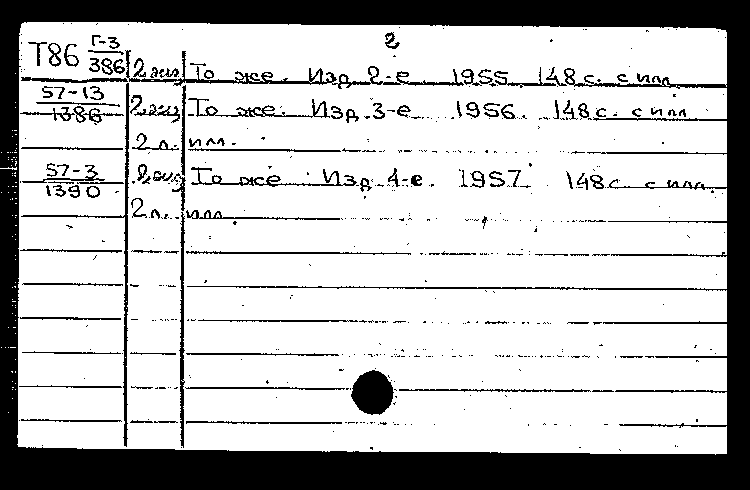 2
Т86 Г-3/386 2 экз То же. Изд. 2-е. 1955. 148 с. с илл.
57-13/1386 2 экз То же. Изд. 3-е 1956. 148 с. с илл
2 л. илл.
57-3/1390 2 экз То же Изд. 4-е. 1957. 148 с. с илл.
2 л. илл.